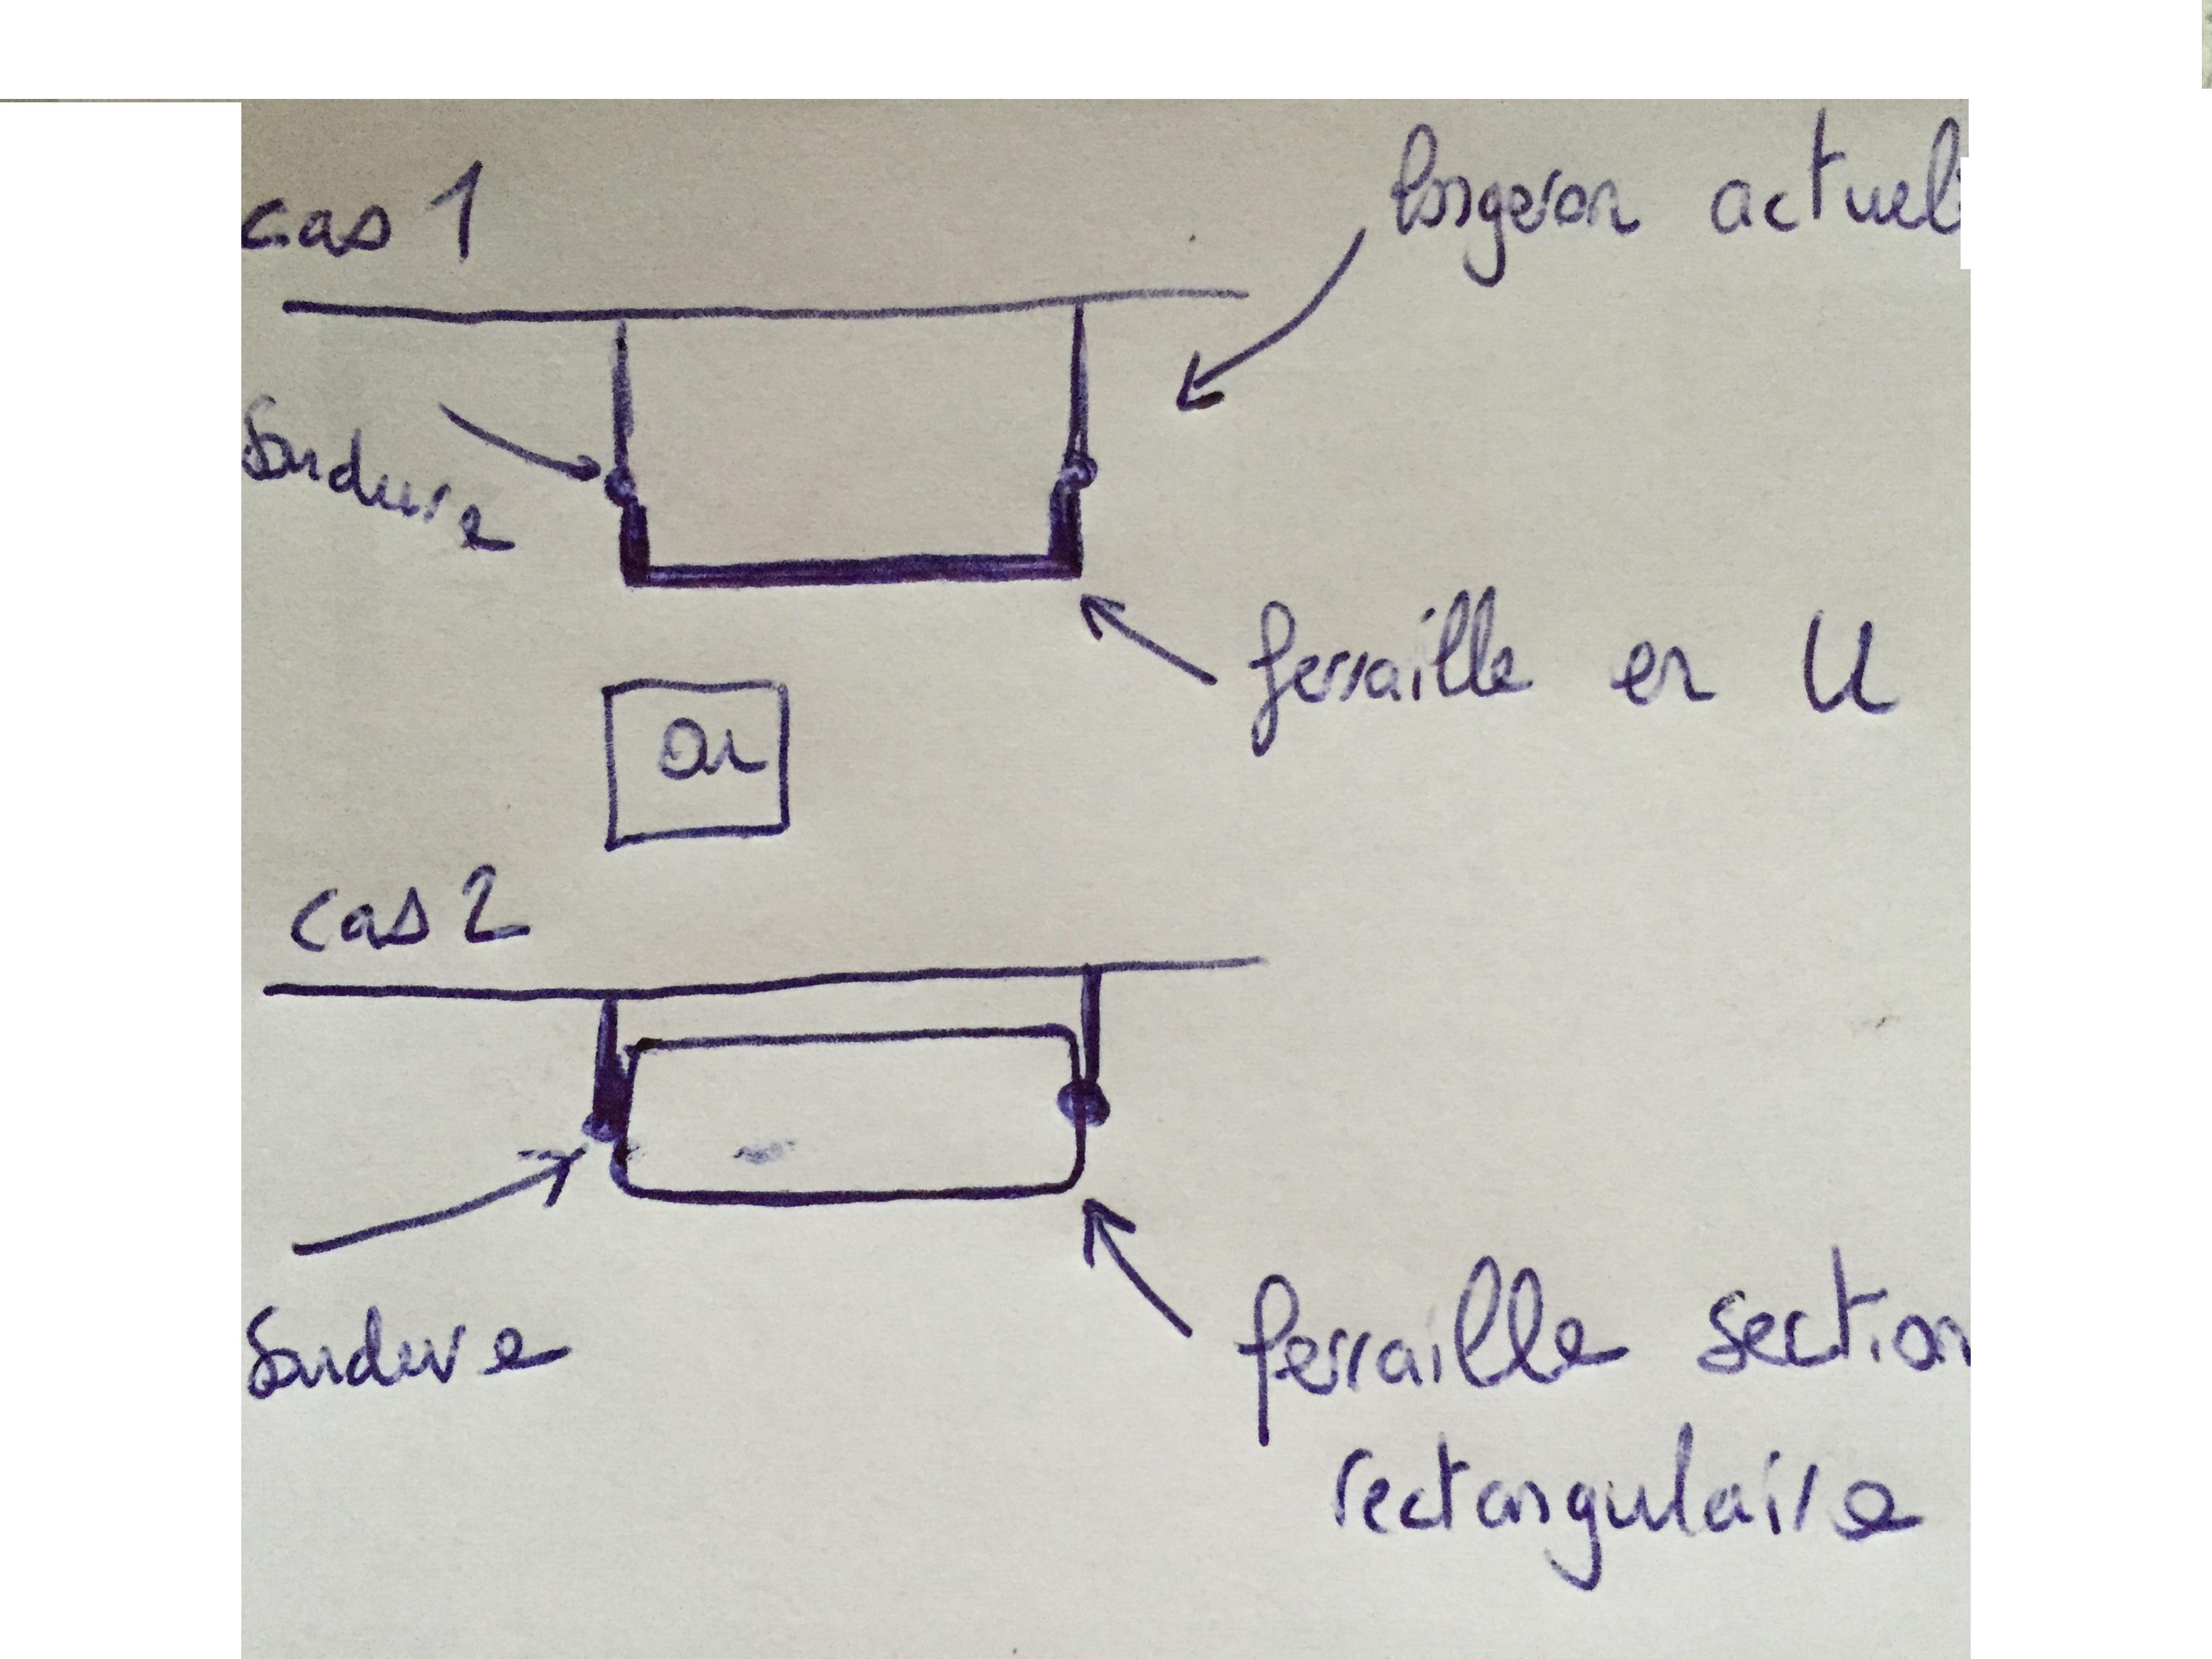 cas 1
longeron actuel
soudure
ferraille en U
ou
cas 2
soudure
ferraille section
rectangulaire